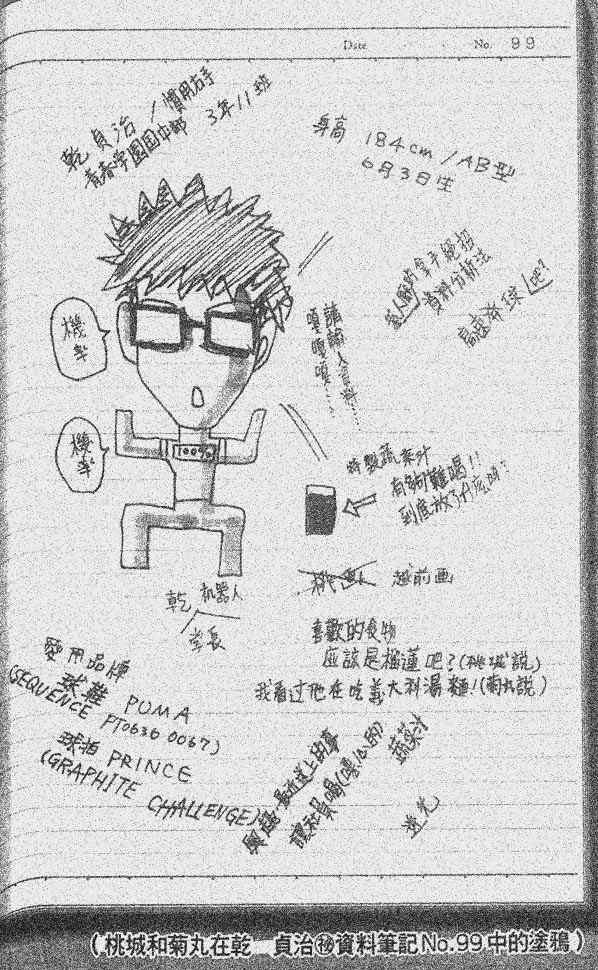 Date
No. 99
乾 貞治 / 慣用右手
青春学園国中部 3年11班
身高 184cm / AB型
6月3日生
機率
嘎嘎嘎……
請輸入資料……
拿手絕招
資料分析法
高速發球
機率
100%
特製蔬菜汁
有夠難喝!!
到底放了什麼呀?
越前画
乾
机器人
学長
喜歡的食物
應該是榴蓮吧?(桃城説)
我看过他在吃義大利湯麵!(菊丸説)
愛用品牌
球鞋 PUMA
(SEQUENCE PT0636 0067)
球拍 PRINCE
(GRAPHITE CHALLENGE)
興趣・最近迷上的事
讓社員喝(噁心的)
蔬菜汁
(桃城和菊丸在乾 貞治㊙資料筆記No.99中的塗鴉)